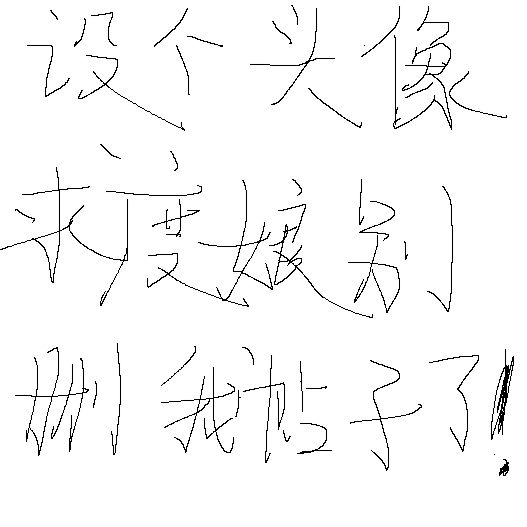 设个头像
求度娘别
删我帖子了!